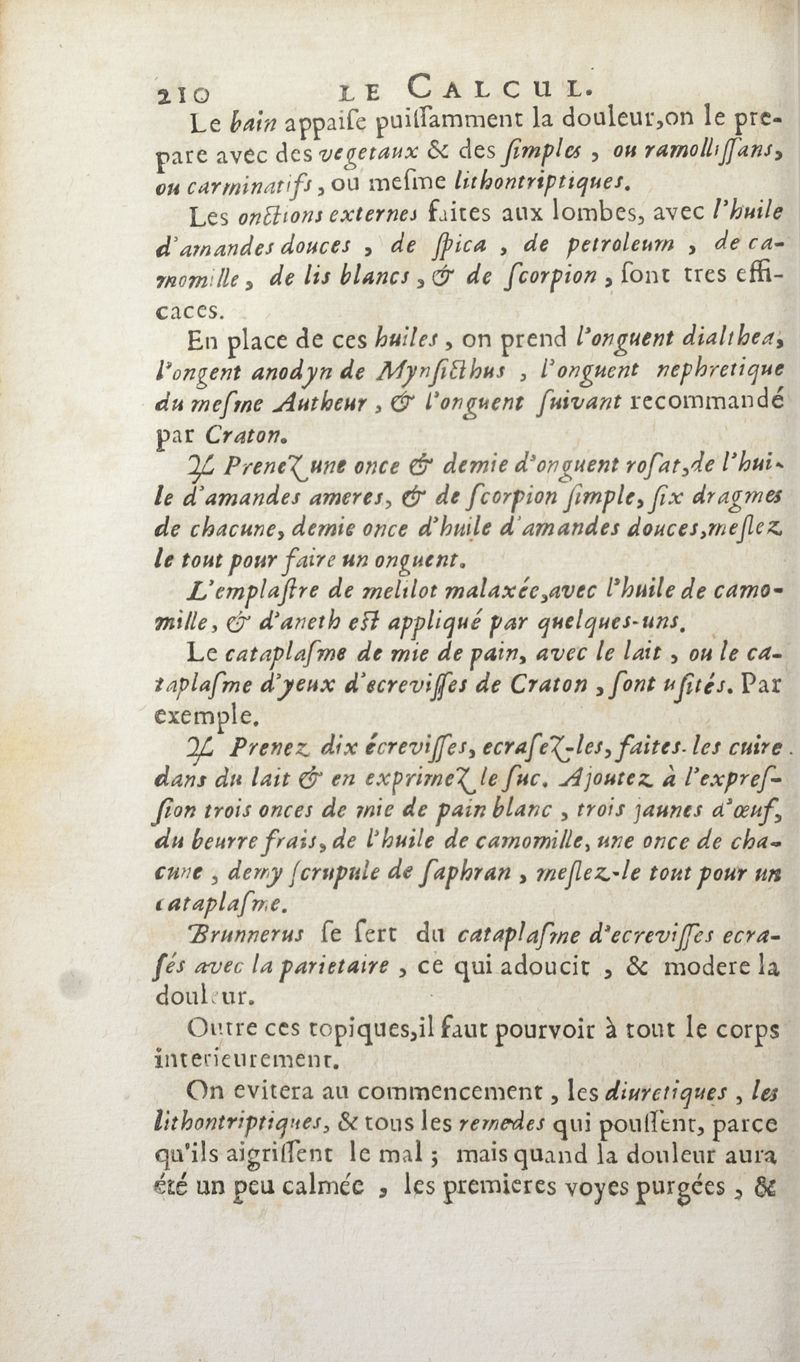 210 LE CALCUL.
Le bain appaiſe puiſſamment la douleur,on le pre-
pare avec des vegetaux & des ſimples , ou ramolliſſans,
ou carminatifs , ou meſme lithontriptiques.
Les onctions externes faites aux lombes, avec l'huile
d'amandes douces , de ſpica , de petroleum , de ca-
momille , de lis blancs , & de ſcorpion , ſont tres effi-
caces.
En place de ces huiles , on prend l'onguent dialthea,
l'ongent anodyn de Mynſicthus , l'onguent nephretique
du meſme Autheur , & l'onguent ſuivant recommandé
par Craton.
♃ Prenez une once & demie d'onguent roſat,de l'hui-
le d'amandes ameres, & de ſcorpion ſimple, ſix dragmes
de chacune, demie once d'huile d'amandes douces,meſlez
le tout pour faire un onguent.
L'emplaſtre de melilot malaxée,avec l'huile de camo-
mille, & d'aneth eſt appliqué par quelques-uns.
Le cataplaſme de mie de pain, avec le lait , ou le ca-
taplaſme d'yeux d'ecreviſſes de Craton , ſont uſités. Par
exemple.
♃ Prenez dix écreviſſes, ecraſez-les, faites-les cuire
dans du lait & en exprimez le ſuc. Ajoutez à l'expreſ-
ſion trois onces de mie de pain blanc , trois jaunes d'œuf,
du beurre frais, de l'huile de camomille, une once de cha-
cune , demy ſcrupule de ſaphran , meſlez-le tout pour un
cataplaſme.
Brunnerus ſe ſert du cataplaſme d'ecreviſſes ecra-
ſés avec la parietaire , ce qui adoucit , & modere la
douleur.
Outre ces topiques,il faut pourvoir à tout le corps
interieurement.
On evitera au commencement , les diuretiques , les
lithontriptiques, & tous les remedes qui pouſſent, parce
qu'ils aigriſſent le mal ; mais quand la douleur aura
été un peu calmée , les premieres voyes purgées , &